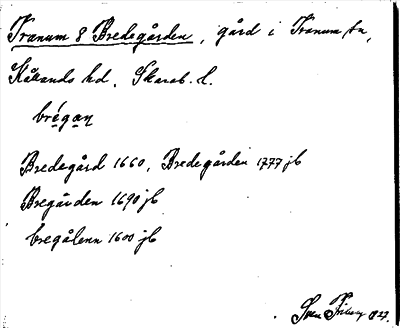 Tranum 8 Bredegården, gård i Tranum sn,
Kållands hd. Skarab. l.
brégan
Bredegård 1660, Bredegården 1777 jb
Bregården 1690 jb
bregålenn 1600 jb
Sven